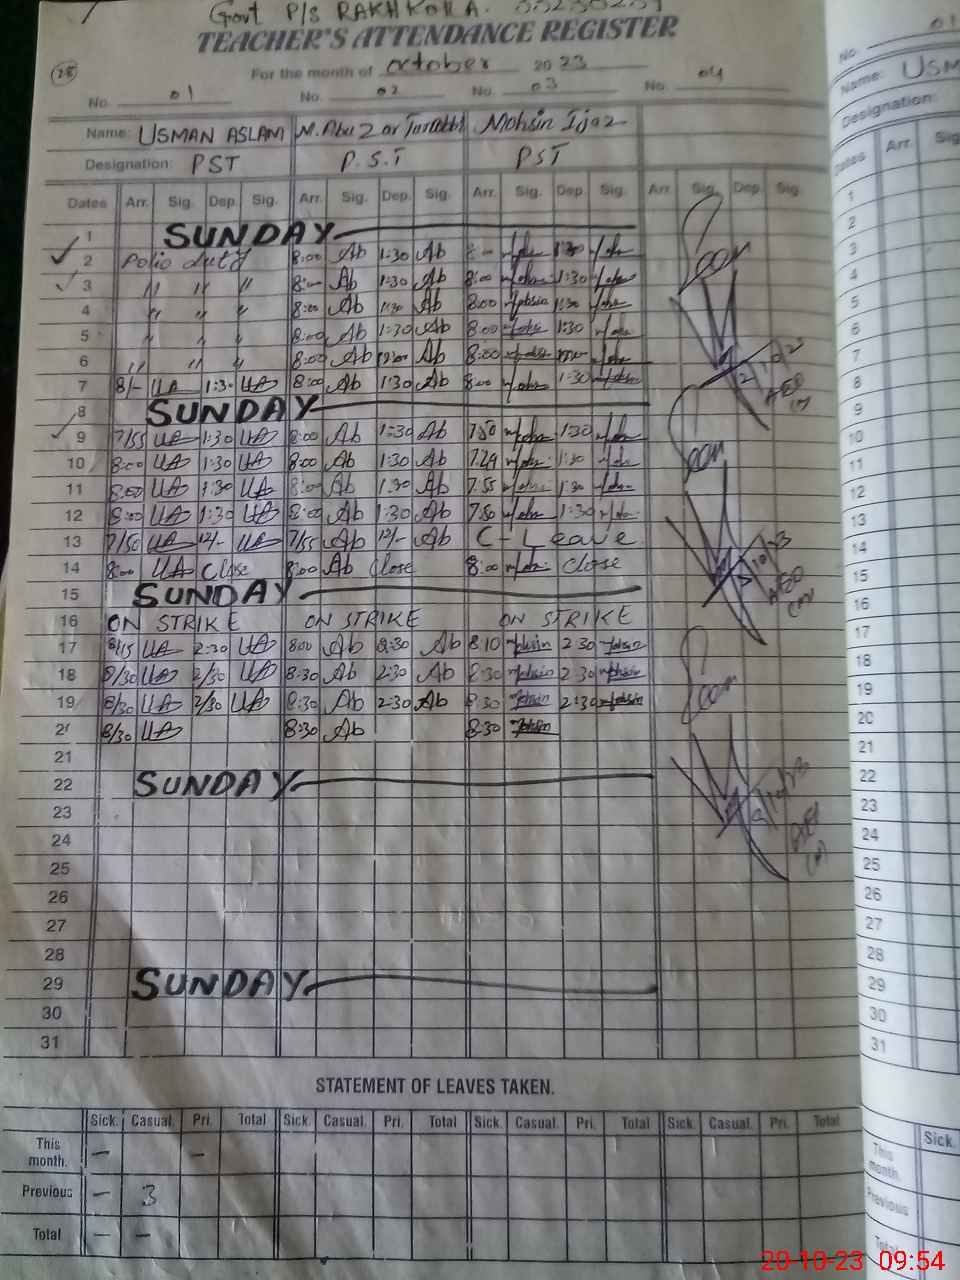 Govt P/S RAKHKORA. 33230239
TEACHER'S ATTENDANCE REGISTER
28
For the month of October 2023
No. 01 No. 02 No. 03 No. 04
Name: USMAN ASLAM M. Abu Zar Mohsin Ijaz
Designation: PST P.S.T PST
Dates Arr. Sig. Dep. Sig. Arr. Sig. Dep. Sig. Arr. Sig. Dep. Sig. Arr. Sig. Dep. Sig.
1 SUNDAY
2 Polio duty 8:00 Ab 1:30 Ab 8:- 1:30
3 " " " 8:00 Ab 1:30 Ab 8:00 1:30
4 " " " 8:00 Ab 1:30 Ab 8:00 Mohsin 1:30
5 " " " 8:00 Ab 1:30 Ab 8:00 1:30
6 " " " 8:00 Ab Ab 8:00
7 8/- UA 1:30 UA 8:00 Ab 1:30 Ab 8:00 1:30
8 SUNDAY
9 7/55 UA 1:30 UA 8:00 Ab 1:30 Ab 7:50 1:30
10 8:00 UA 1:30 UA 8:00 Ab 1:30 Ab 1:30
11 8:00 UA 1:30 UA 8:00 Ab 1:30 Ab 7:55 1:30
12 8:00 UA 1:30 UA 8:00 Ab 1:30 Ab 7:50 1:30
13 7/50 UA 12/- UA 7/55 Ab 12/- Ab C-Leave
14 8:00 UA Close 8:00 Ab Close 8:00 Close
15 SUNDAY
16 ON STRIKE ON STRIKE ON STRIKE
17 8/15 UA 2:30 UA 8:00 Ab 2:30 Ab 8:10 Mohsin 2:30 Mohsin
18 8/30 UA 2/30 UA 8:30 Ab 2:30 Ab 8:30 Mohsin 2:30 Mohsin
19 8/30 UA 2/30 UA 8:30 Ab 2:30 Ab 8:30 Mohsin 2:30 Mohsin
20 8/30 UA 8:30 Ab 8:30 Mohsin
21
22 SUNDAY
23
24
25
26
27
28
29 SUNDAY
30
31
STATEMENT OF LEAVES TAKEN.
Sick. Casual. Pri. Total Sick. Casual. Pri. Total Sick. Casual. Pri. Total Sick. Casual. Pri. Total
This month. - -
Previous - 3
Total - -
No. 01
Name: USM
Designation:
Dates Arr. Sig
1
2
3
4
5
6
7
8
9
10
11
12
13
14
15
16
17
18
19
20
21
22
23
24
25
26
27
28
29
30
31
Sick.
This month.
Previous
Total
20-10-23 09:54